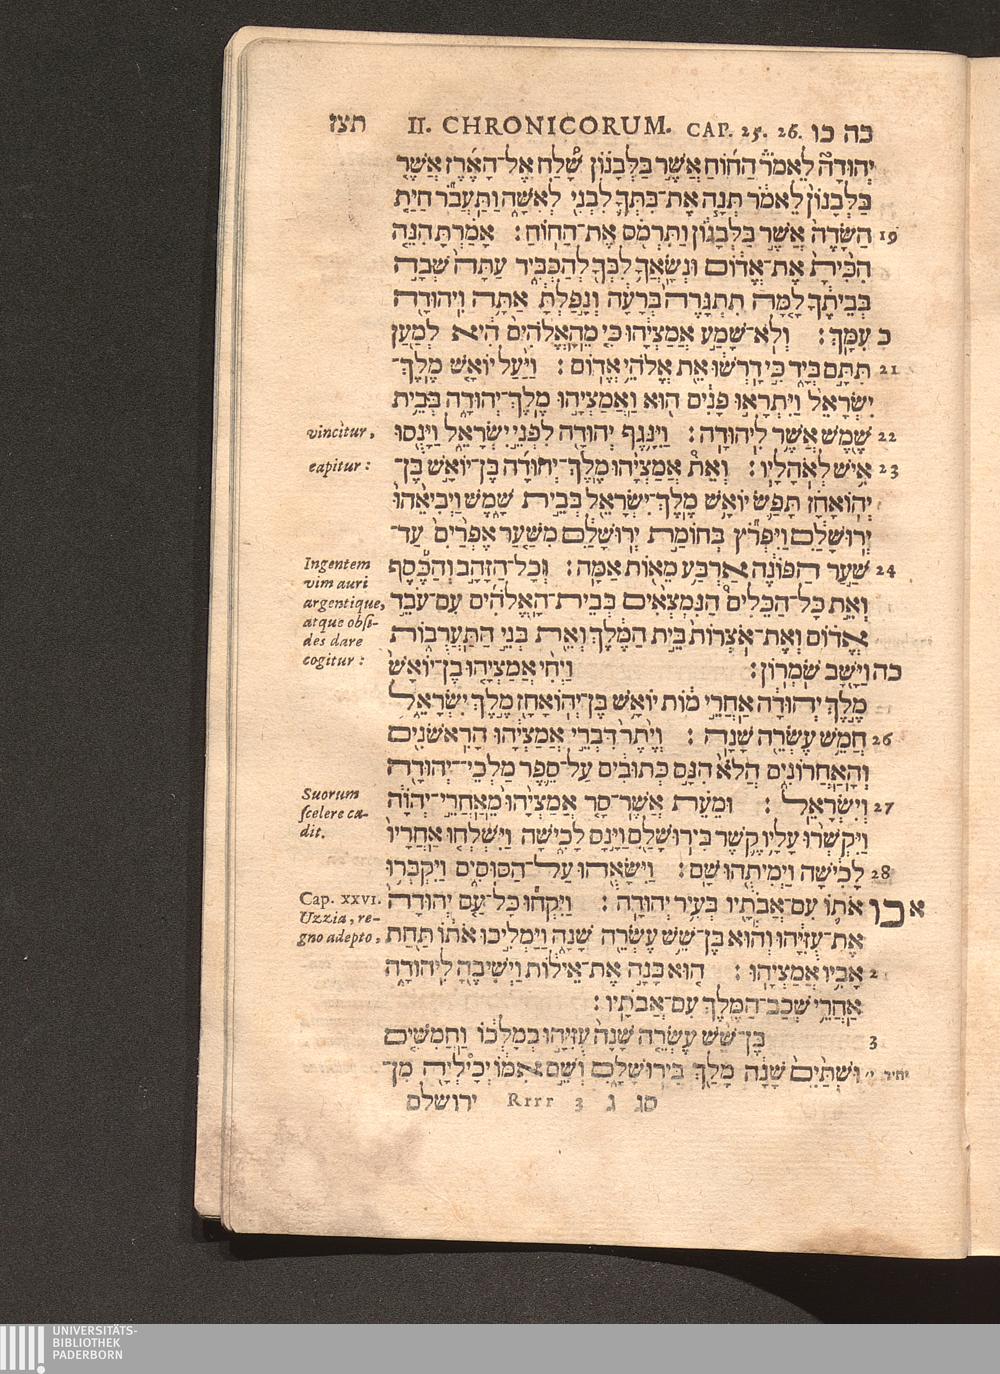 תצז II. CHRONICORUM. CAP. 25. 26. כה כו
יְהוּדָה֮ לֵאמֹר֒ הַח֜וֹחַ אֲשֶׁ֣ר בַּלְּבָנ֗וֹן שָׁ֠לַח אֶל־הָאֶ֜רֶז אֲשֶׁ֤ר
בַּלְּבָנוֹן֙ לֵאמֹ֔ר תְּנָ֧ה אֶֽת־בִּתְּךָ֛ לִבְנִ֖י לְאִשָּׁ֑ה וַֽתַּעֲבֹ֞ר חַיַּ֤ת
הַשָּׂדֶה֙ אֲשֶׁ֣ר בַּלְּבָנ֔וֹן וַתִּרְמֹ֖ס אֶת־הַחֽוֹחַ׃ אָמַ֗רְתָּ הִנֵּ֤ה 19
הִכִּ֙יתָ֙ אֶת־אֱד֔וֹם וּנְשָׂאֲךָ֥ לִבְּךָ֖ לְהַכְבִּ֑יד עַתָּה֙ שְׁבָ֣ה
בְּבֵיתֶ֔ךָ לָ֤מָּה תִתְגָּרֶה֙ בְּרָעָ֔ה וְנָ֣פַלְתָּ֔ אַתָּ֖ה וִיהוּדָ֥ה
עִמָּֽךְ׃ וְלֹא־שָׁמַ֣ע אֲמַצְיָ֔הוּ כִּ֤י מֵהָֽאֱלֹהִים֙ הִ֔יא לְמַ֖עַן כ
תִּתָּ֣ם בְּיָ֑ד כִּ֣י דָֽרְשׁ֔וּ אֵ֖ת אֱלֹהֵ֥י אֱדֽוֹם׃ וַיַּ֨עַל יוֹאָ֤שׁ מֶֽלֶךְ־ 21
יִשְׂרָאֵל֙ וַיִּתְרָא֣וּ פָנִ֔ים ה֖וּא וַאֲמַצְיָ֣הוּ מֶֽלֶךְ־יְהוּדָ֑ה בְּבֵ֥ית
vincitur, שֶׁ֖מֶשׁ אֲשֶׁ֥ר לִיהוּדָֽה׃ וַיִּנָּ֥גֶף יְהוּדָ֖ה לִפְנֵ֣י יִשְׂרָאֵ֑ל וַיָּנֻ֖סוּ 22
capitur: אִ֥ישׁ לְאֹהָלָֽיו׃ וְאֵת֩ אֲמַצְיָ֨הוּ מֶֽלֶךְ־יְהוּדָ֜ה בֶּן־יוֹאָ֣שׁ בֶּן־ 23
יְהוֹאָחָ֗ז תָּפַ֛שׂ יוֹאָ֥שׁ מֶֽלֶךְ־יִשְׂרָאֵ֖ל בְּבֵ֣ית שָׁ֑מֶשׁ וַיְבִיאֵ֙הוּ֙
יְר֣וּשָׁלַ֔ם וַיִּפְרֹ֞ץ בְּחוֹמַ֣ת יְרוּשָׁלַ֗ם מִשַּׁ֤עַר אֶפְרַ֙יִם֙ עַד־
Ingentem שַׁ֣עַר הַפּוֹנֶ֔ה אַרְבַּ֥ע מֵא֖וֹת אַמָּֽה׃ וְכָֽל־הַזָּהָ֣ב וְהַכֶּ֡סֶף 24
vim auri
argentique, וְאֵ֣ת כָּל־הַ֠כֵּלִים הַנִּמְצְאִ֨ים בְּבֵית־הָאֱלֹהִ֜ים עִם־עֹבֵ֣ד
atque obsi-
des dare אֱד֗וֹם וְאֶת־אֹצְרוֹת֙ בֵּ֣ית הַמֶּ֔לֶךְ וְאֵ֖ת בְּנֵ֣י הַתַּעֲרֻב֑וֹת
cogitur: וַיָּ֖שָׁב שֹׁמְרֽוֹן׃ וַיְחִ֨י אֲמַצְיָ֤הוּ בֶן־יוֹאָשׁ֙ כה
מֶ֣לֶךְ יְהוּדָ֔ה אַחֲרֵ֣י מ֔וֹת יוֹאָ֥שׁ בֶּן־יְהוֹאָחָ֖ז מֶ֣לֶךְ יִשְׂרָאֵ֑ל
חֲמֵ֥שׁ עֶשְׂרֵ֖ה שָׁנָֽה׃ וְיֶ֙תֶר֙ דִּבְרֵ֣י אֲמַצְיָ֔הוּ הָרִאשֹׁנִ֖ים 26
וְהָאַחֲרוֹנִ֑ים הֲלֹא֙ הִנָּ֣ם כְּתוּבִ֔ים עַל־סֵ֥פֶר מַלְכֵי־יְהוּדָ֖ה
Suorum וְיִשְׂרָאֵֽל׃ וּמֵעֵ֗ת אֲשֶׁר־סָ֤ר אֲמַצְיָ֙הוּ֙ מֵאַחֲרֵ֣י יְהֹוָ֔ה 27
scelere ca-
dit. וַיִּקְשְׁר֨וּ עָלָ֥יו קֶ֛שֶׁר בִּירוּשָׁלַ֖ם וַיָּ֣נָס לָכִ֑ישָׁה וַיִּשְׁלְח֤וּ אַחֲרָיו֙
לָכִ֔ישָׁה וַיְמִיתֻ֖הוּ שָֽׁם׃ וַיִּשָּׂאֻ֖הוּ עַל־הַסּוּסִ֑ים וַיִּקְבְּר֥וּ 28
Cap. XXVI. אֹת֛וֹ עִם־אֲבֹתָ֖יו בְּעִ֥יר יְהוּדָֽה׃ וַיִּקְח֞וּ כָּל־עַ֤ם יְהוּדָה֙ כו א
Uzzia, re-
gno adepto, אֶת־עֻזִּיָּ֔הוּ וְה֕וּא בֶּן־שֵׁ֥שׁ עֶשְׂרֵ֖ה שָׁנָ֑ה וַיַּמְלִ֣יכוּ אֹת֔וֹ תַּ֖חַת
אָבִ֥יו אֲמַצְיָֽהוּ׃ ה֚וּא בָּנָ֣ה אֶת־אֵיל֔וֹת וַיְשִׁיבֶ֖הָ לִֽיהוּדָ֑ה 2
אַחֲרֵ֥י שְׁכַֽב־הַמֶּ֖לֶךְ עִם־אֲבֹתָֽיו׃
בֶּן־שֵׁ֨שׁ עֶשְׂרֵ֤ה שָׁנָה֙ עֻזִּיָּ֣הוּ בְמָלְכ֔וֹ וַחֲמִשִּׁ֤ים 3
וּשְׁתַּ֙יִם֙ שָׁנָ֔ה מָלַ֖ךְ בִּירוּשָׁלָ֑ם וְשֵׁ֣ם אִמּ֔וֹ יְכִילְיָ֖ה מִן־ יתיר י׳
ירושלם Rrrr 3 סג ג
UNIVERSITÄTS-
BIBLIOTHEK
PADERBORN